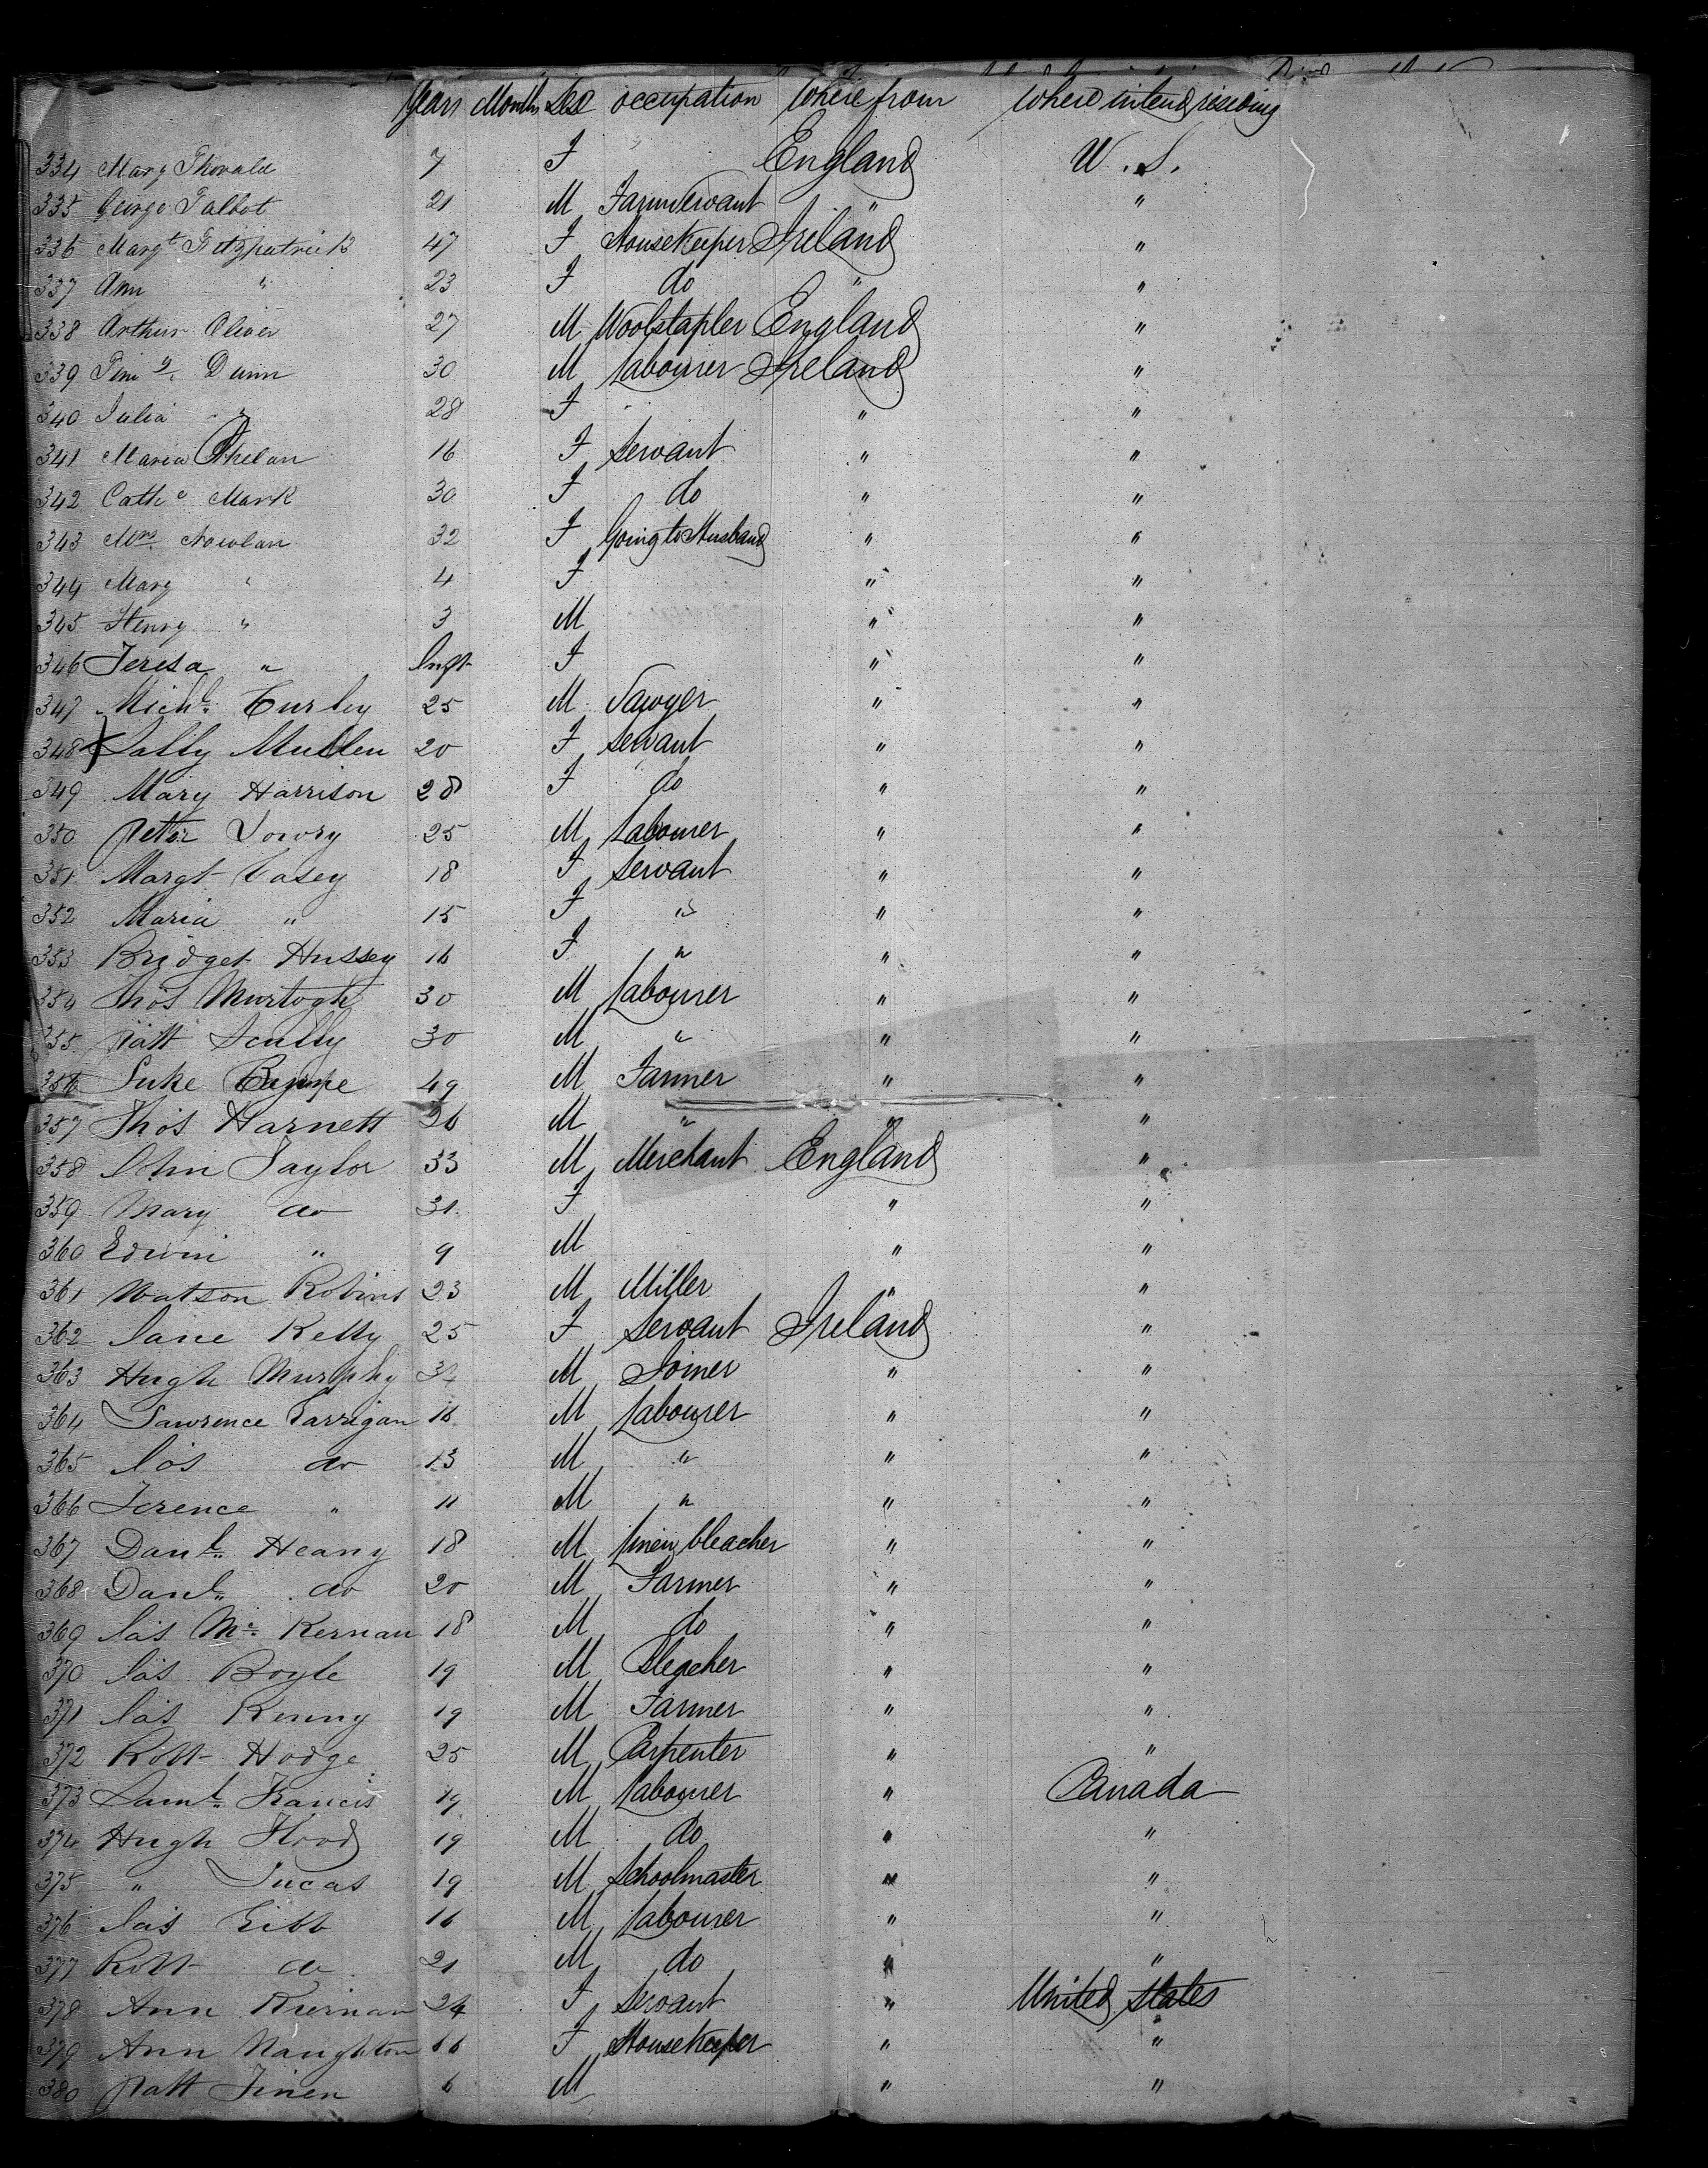 Years Months Sex occupation Where from Where intend residing
334 Mary Thorald 7 F England U.S.
335 George Talbot 21 M Farm Servant " "
336 Margt Fitzpatrick 47 F Housekeeper Ireland "
337 Ann " 23 F do " "
338 Arthur Oliver 27 M Woolstapler England "
339 Timy Dunn 30 M Labourer Ireland "
340 Julia " 28 F " "
341 Maria Phelan 16 F Servant " "
342 Cathe Mark 30 F do " "
343 Mrs Nowlan 32 F Going to Husband " "
344 Mary " 4 F " "
345 Henry " 3 M " "
346 Teresa " Inft F " "
347 Michl. Curley 25 M Sawyer " "
348 Sally Mullen 20 F Servant " "
349 Mary Harrison 28 F do " "
350 Peter Lowry 25 M Labourer " "
351 Margt Casey 18 F Servant " "
352 Maria " 15 F " " "
353 Bridget Hussey 16 F " " "
354 Thos Murtogh 30 M Labourer " "
355 Patt Scully 30 M " " "
356 Luke 49 M Farmer " "
357 Thos Harnett 26 M " " "
358 John Taylor 33 M Merchant England "
359 Mary do 31 F " "
360 Edwin " 9 M " "
361 Watson Robins 23 M Miller " "
362 Jane Kelly 25 F Servant Ireland "
363 Hugh Murphy 34 M Joiner " "
364 Lawrence Garrigan 16 M Labourer " "
365 Jos do 13 M " " "
366 Terence " 11 M " " "
367 Danl. Heany 18 M Linen bleacher " "
368 Danl. do 20 M Farmer " "
369 Jas Mc Kernan 18 M do " "
370 Jas Boyle 19 M Bleacher " "
371 Jas Kenny 19 M Farmer " "
372 Robt Hodge 25 M Carpenter " "
373 Saml. Francis 19 M Labourer " Canada
374 Hugh Flood 19 M do " "
375 " Lucas 19 M Schoolmaster " "
376 Jas Gibb 16 M Labourer " "
377 Robt do 21 M do " "
378 Ann Kiernan 24 F Servant " United States
379 Ann Naughton 66 F Housekeeper " "
380 Patt Finen 6 M " "